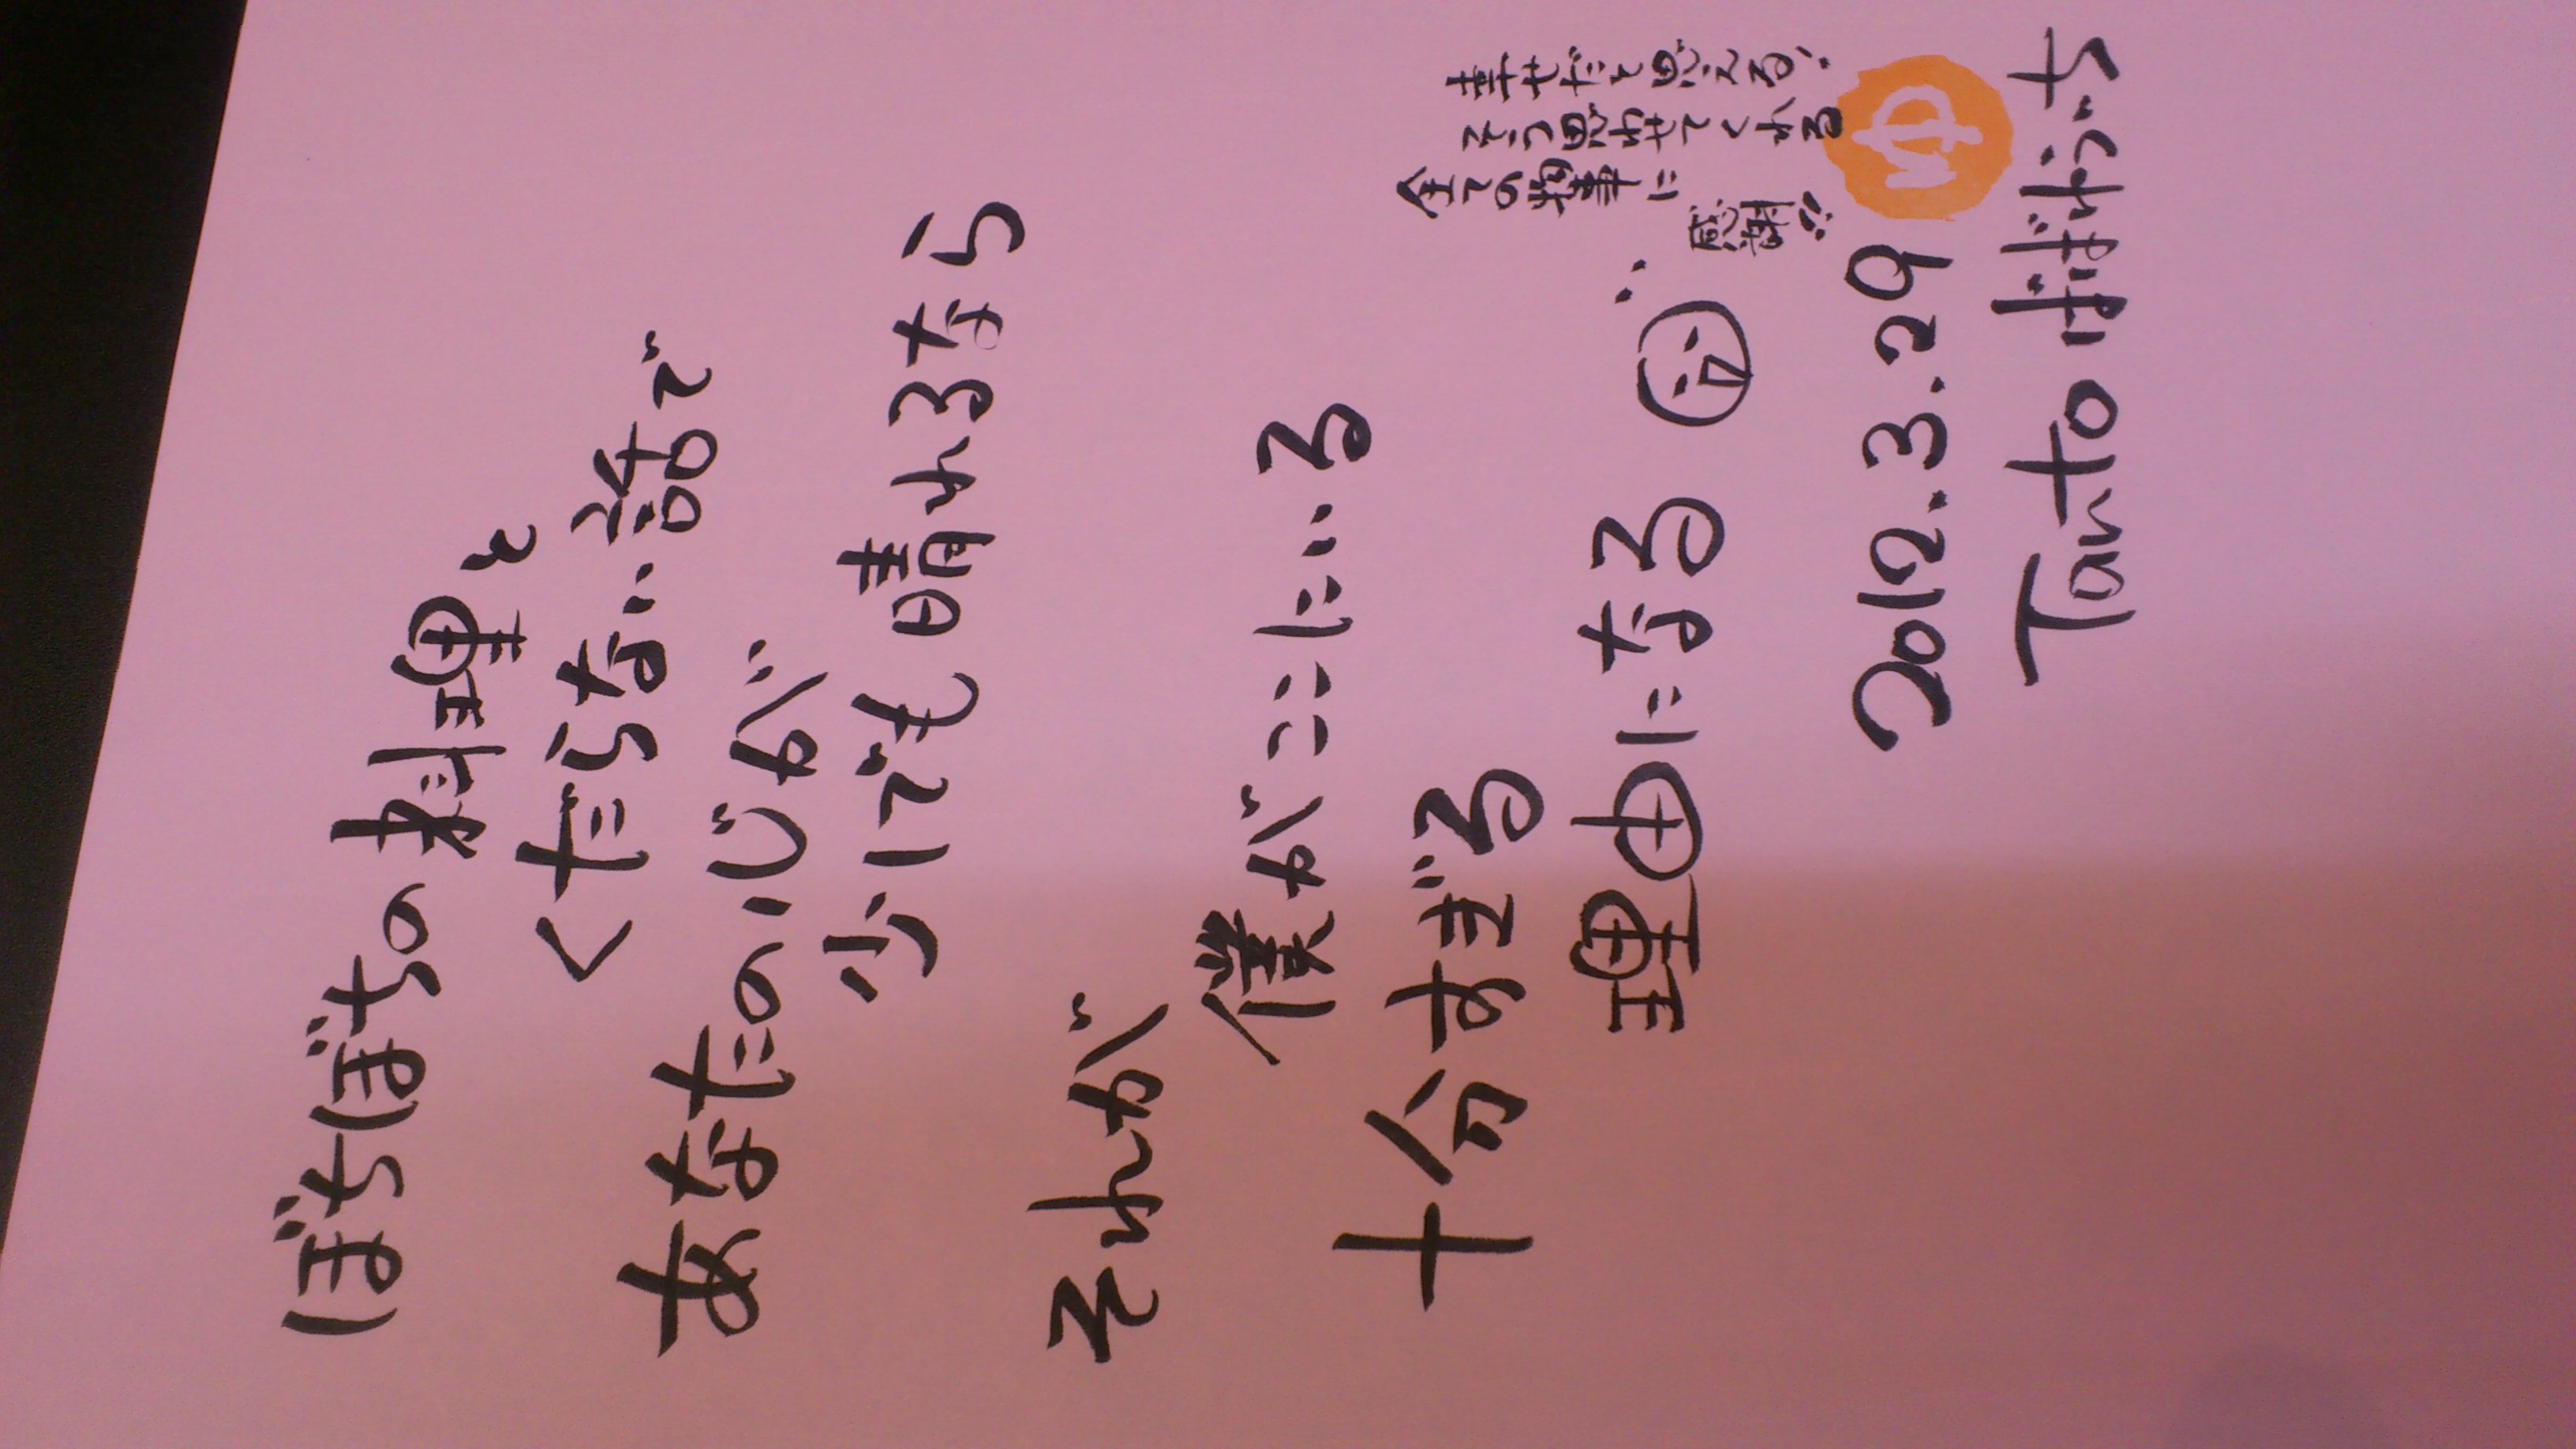 ぼちぼちの料理と
くだらない話で
あなたの心が
少しでも晴れるなら
それが
僕がここにいる
十分すぎる
理由になる
幸せだと思える、
そう思わせてくれる
全ての物事に
感謝!!
2012.3.29
Tanto